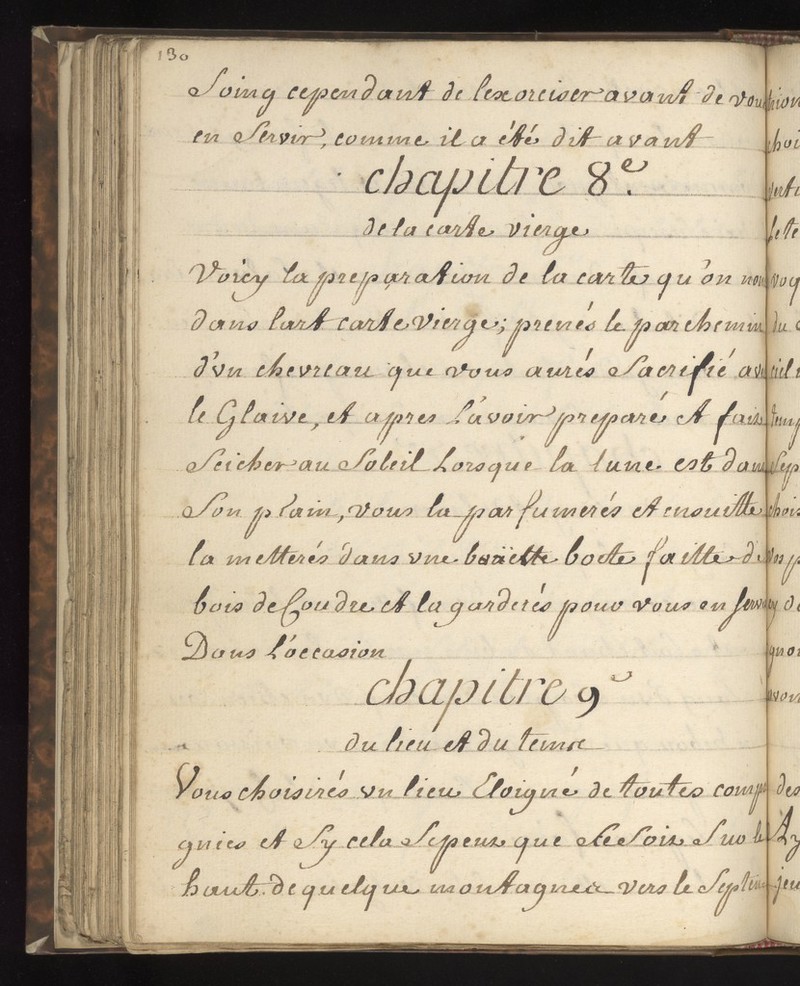 130
Soing cependant de lexorciser avant de vou
en Servir, comme il a été dit avant
chapitre 8e.
de la carte vierge
Voicy la preparation de la carte qu'on nom
dans l'art carte Vierge; prenés le parchemin
d'vn chevreau que vous aurés Sacrifié av
le Glaive, et apres l'avoir preparé et fais
Seicher au Soleil Lorsque la lune est dans
Son plain, vous la parfumerés et ensuitte
la metterés dans vne boette faitte de
bois de Coudre et la garderés pour vous en Serv
Dans L'occasion
chapitre 9e
du lieu et du tems
Vous choisirés vn lieu Eloigné de toutes comp
gnies et Sy cela Se peux que Ce Soix Sur le
haut de quelque montagne vers le Septen